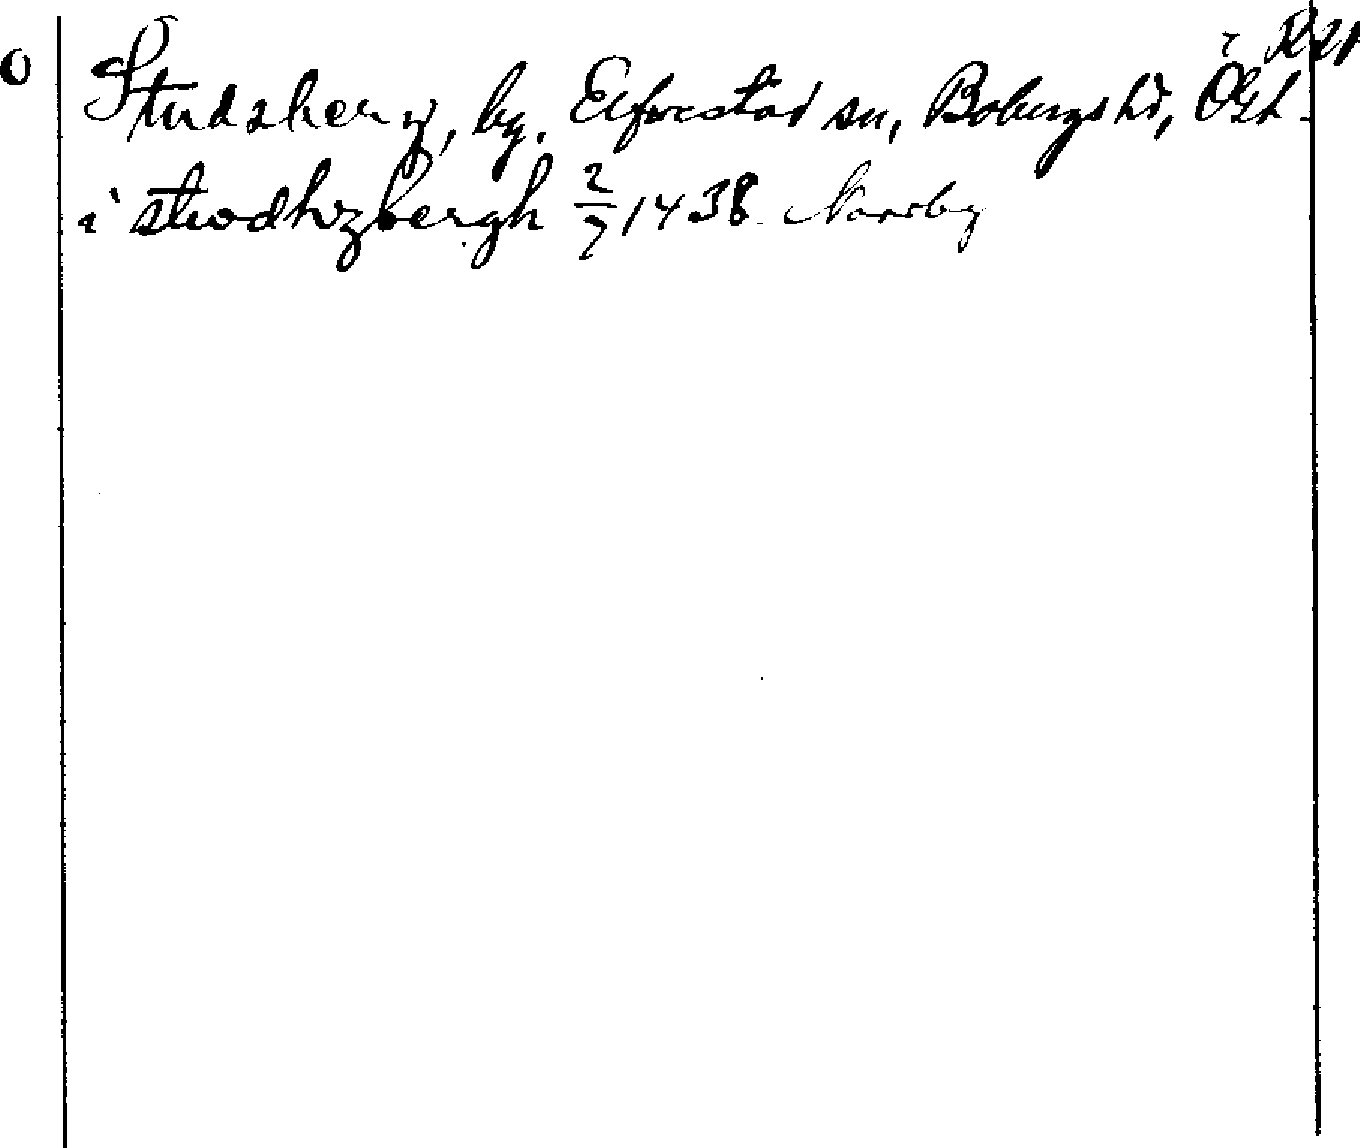 R 21
O Studsberg, by, Elfvestad sn, Bobergs hd, Ög. l.
i stwodhzbergh 2/7 1438 Norrby